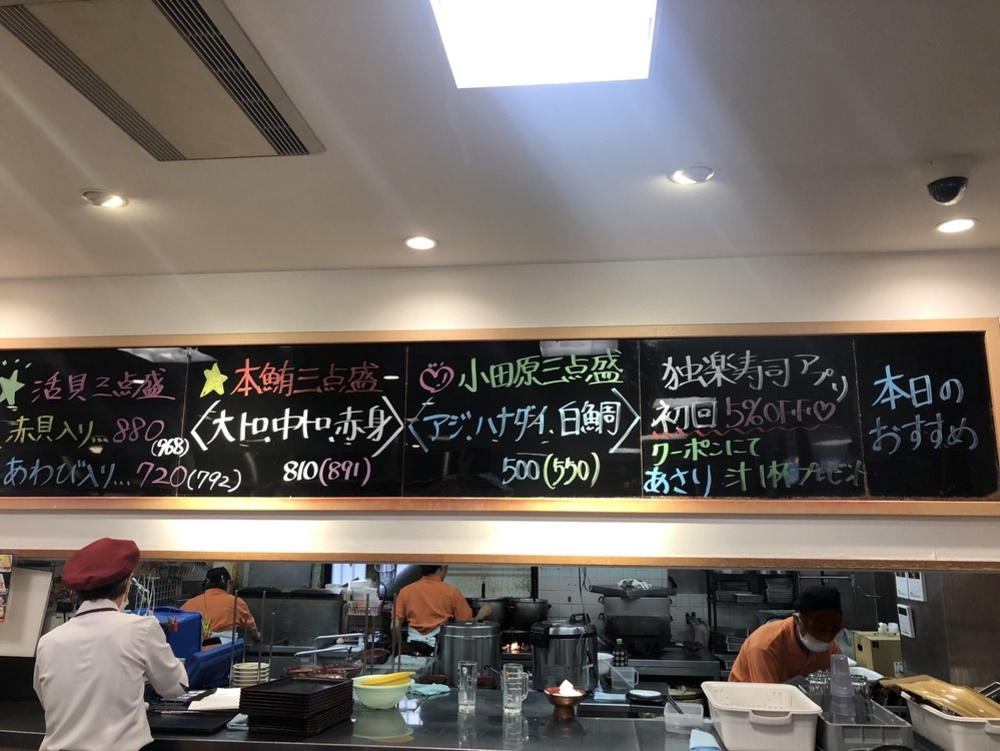 活貝三点盛
赤貝入り…880(968)
あわび入り…720(792)
本鮪三点盛
〈大トロ、中トロ、赤身〉
810(891)
小田原三点盛
〈アジ、ハナダイ、白鯛〉
500(550)
独楽寿司アプリ
初回5%OFF♡
クーポンにて
あさり汁1杯プレゼント
本日の
おすすめ